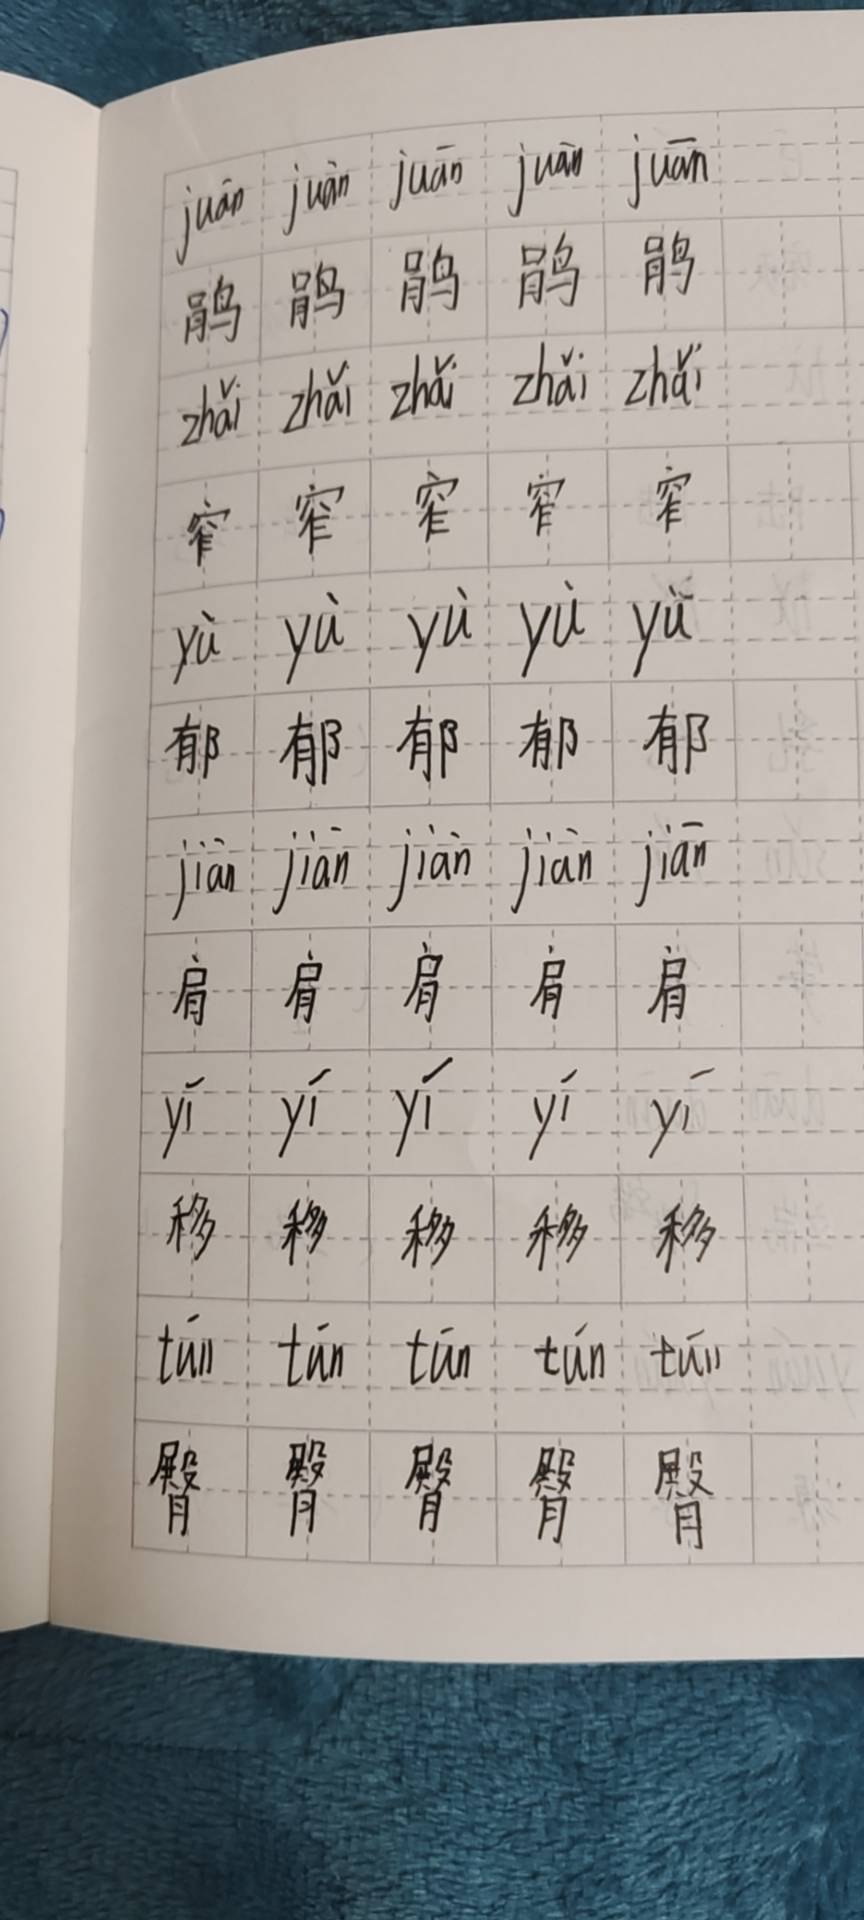 juān juān juān juān juān
鹃 鹃 鹃 鹃 鹃
zhǎi zhǎi zhǎi zhǎi zhǎi
窄 窄 窄 窄 窄
yù yù yù yù yù
郁 郁 郁 郁 郁
jiān jiān jiān jiān jiān
肩 肩 肩 肩 肩
yí yí yí yí yí
移 移 移 移 移
tún tún tún tún tún
臀 臀 臀 臀 臀